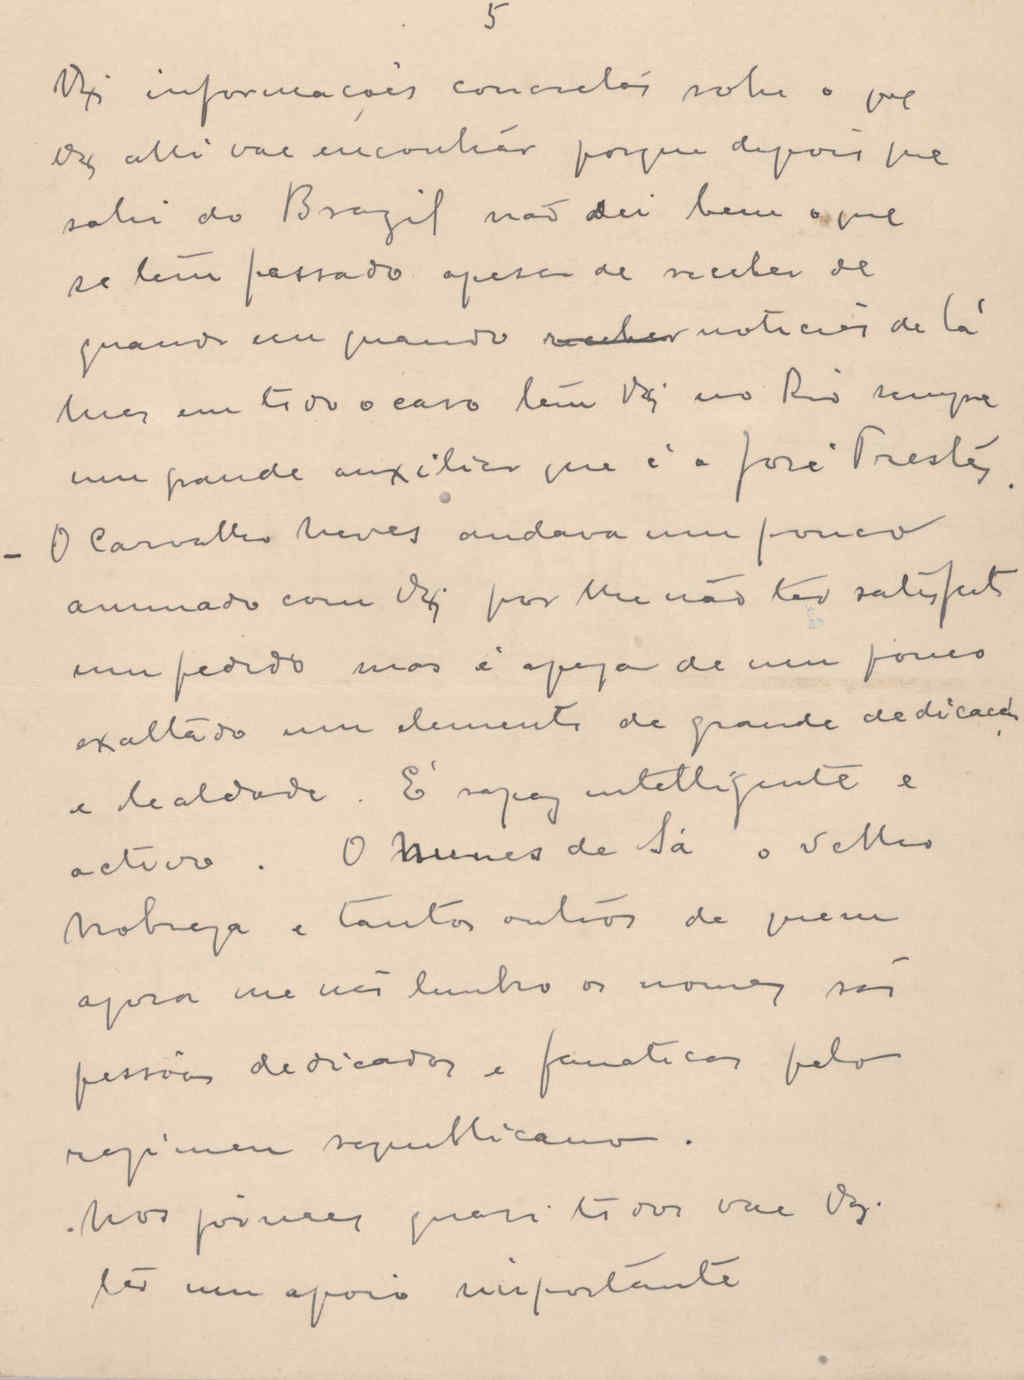 5
Vª informações concretas sobre o que
Vª alli vae encontrár porque depois que
sahi do Brazil não sei bem o que
se tem passado apesar de receber de
quando em quando receber noticias de lá
mas em todo o caso tem Vª no Rio sempre
um grande auxiliar que é o José Prestes.
- O Carvalho Neves andava um pouco
amuado com Vª por lhe não ter satisfeito
um pedido mas é apezar de um pouco
exaltado um elemento de grande dedicação
e lealdade. É rapaz intelligente e
activo. O Nunes de Sá o velho
Nobrega e tantos outros de quem
agora me não lembro os nomes são
pessôas dedicados e fanaticas pelo
regimen republicano.
. Nos jornaes quasi todos vae Vª.
ter um apoio importante